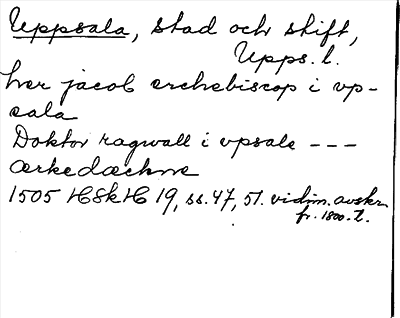 Uppsala, stad och stift,
Upps. l.
her jacob erchebiscop i vp-
sala
Doktor ragwall i vpsale ---
ærkedæchne
1505 HSkH 19, ss. 47, 51. vidim. avskr.
fr. 1800-t.